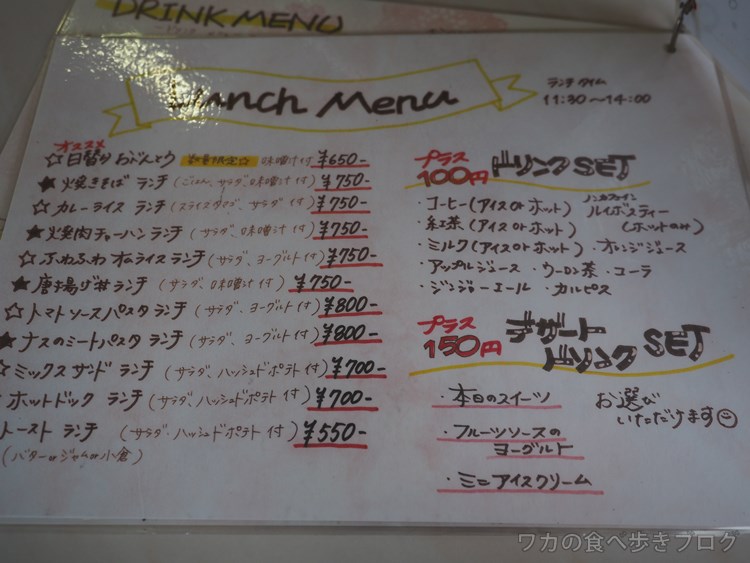 DRINK MENU
Lunch Menu
ランチタイム
11:30〜14:00
オススメ
☆日替わりおべんとう 数量限定☆ 味噌汁付 ¥650-
★焼きそば ランチ (ごはん、サラダ、味噌汁付) ¥750-
☆カレーライス ランチ (スライスタマゴ、サラダ 付) ¥750-
★焼肉チャーハンランチ (サラダ、味噌汁付) ¥750-
☆ふわふわ オムライスランチ (サラダ、ヨーグルト付) ¥750-
★唐揚げ丼ランチ (サラダ、味噌汁付) ¥750-
☆トマトソースパスタ ランチ (サラダ、ヨーグルト付) ¥800-
★ナスのミートパスタ ランチ (サラダ、ヨーグルト付) ¥800-
☆ミックスサンド ランチ (サラダ、ハッシュドポテト付) ¥700-
ホットドック ランチ (サラダ、ハッシュドポテト付) ¥700-
トースト ランチ (サラダ・ハッシュドポテト付) ¥550-
(バターorジャムor小倉)
プラス
100円 ドリンクSET
・コーヒー(アイスorホット)
・紅茶(アイスorホット)
ノンカフェイン
ルイボスティー
(ホットのみ)
・ミルク(アイスorホット) ・オレンジジュース
・アップルジュース ・ウーロン茶 ・コーラ
・ジンジャーエール ・カルピス
プラス
150円 デザート
ドリンク SET
・本日のスイーツ
・フルーツソースの
ヨーグルト
・ミニアイスクリーム
お選び
いただけます
ワカの食べ歩きブログ